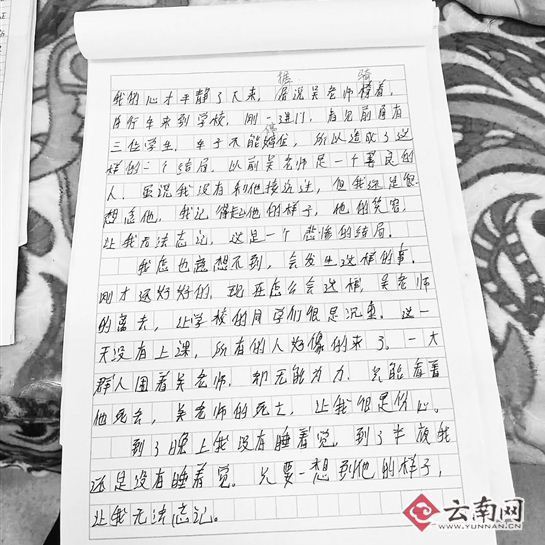 据 骑
我的心才平静了下来，居说吴老师椅着，
自行车来到学校，刚一进门，看见前面有
三位学生，车子不能停住，所以造成了这
样的一个结局，以前吴老师是一个善良的
人，虽说我没有和他接近过，但我还是很
想念他，我记得起他的样子，他的笑容，
让我无法忘记，这是一个悲惨的结局。
我怎也意想不到，会发生这样的事，
刚才还好好的，现在怎么会这样，吴老师
的离去，让学校的同学们很是沉重。这一
天没有上课，所有的人好像的来了。一大
群人围着吴老师，却无能为力，只能看着
他死去，吴老师的死去，让我很是伤心。
到了晚上我没有睡着觉，到了半夜我
还是没有睡着觉。只要一想到他的样子，
让我无法忘记。
云南网
WWW.YUNNAN.CN